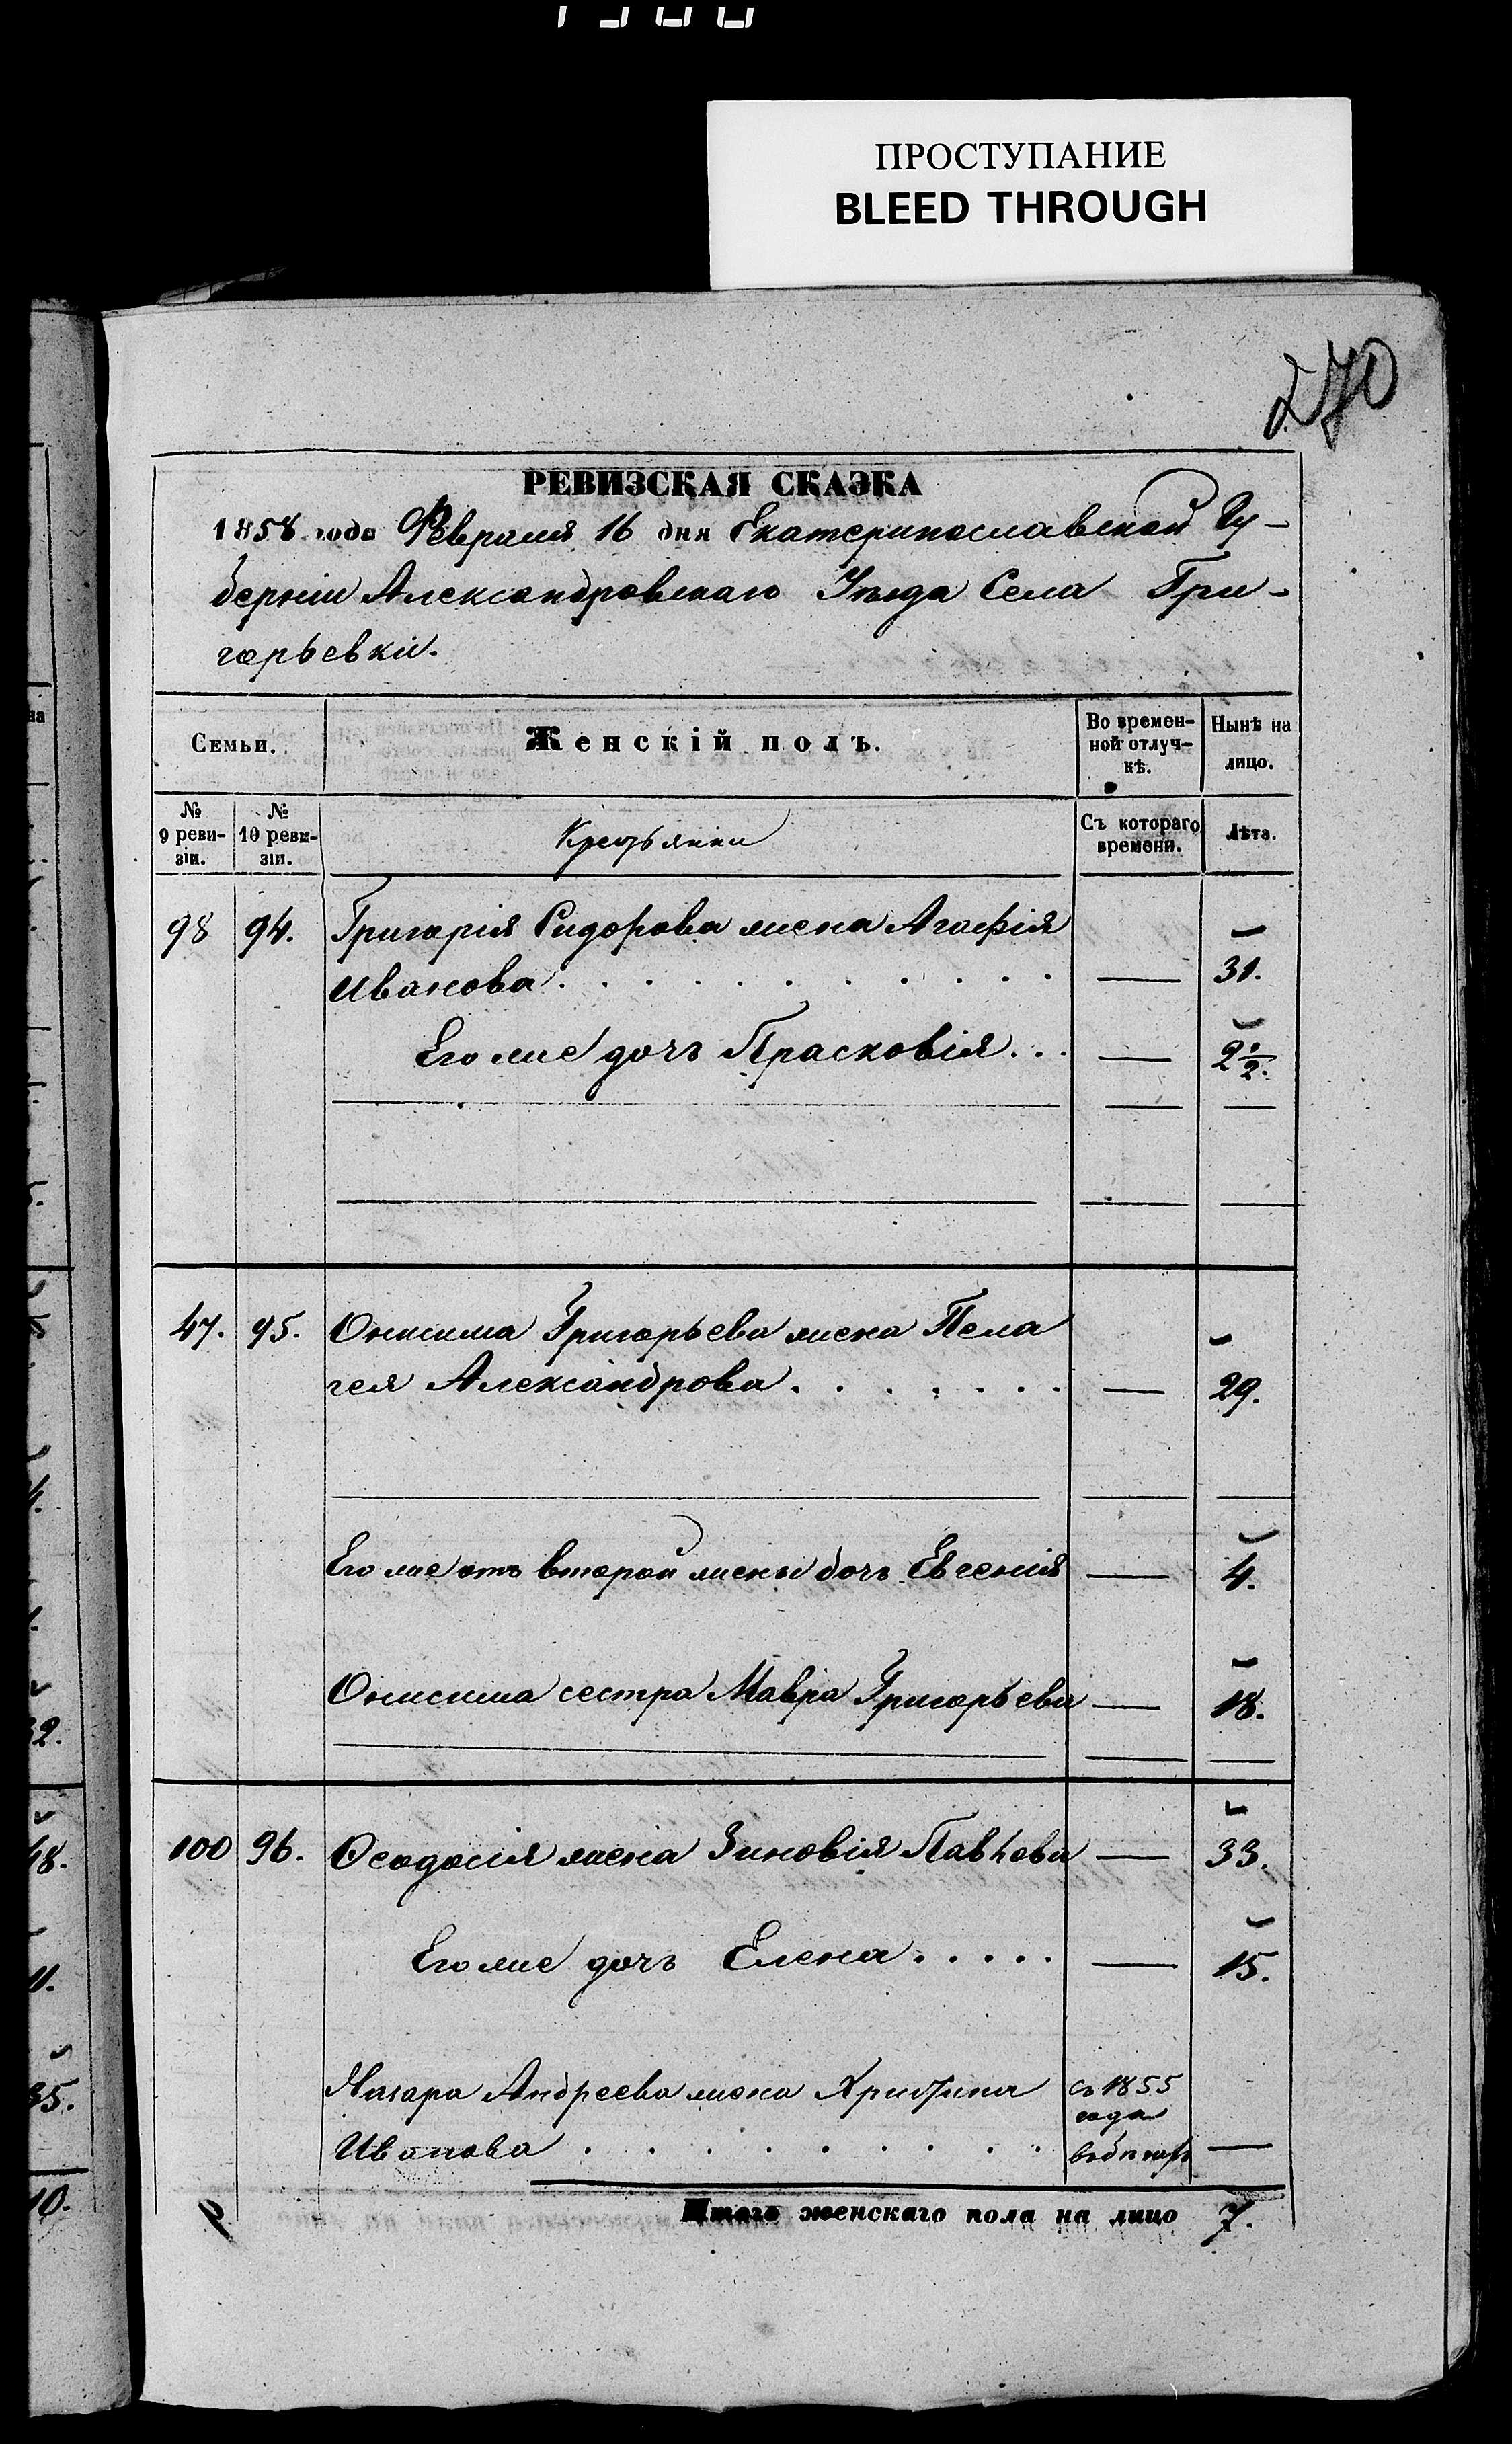 ПРОСТУПАНИЕ
BLEED THROUGH
270
РЕВИЗСКАЯ СКАЗКА
1858 года Февраля 16 дня Екатеринославской Гу-
берніи Александровскаго Уѣзда Села Гри-
горьевки.
Семьи. Женскій полъ. Во времен-ной отлуч-кѣ. Нынѣ на лицо.
№ 9 реви-зіи. № 10 реви-зіи. Крестьянки Съ котораго времени. Лѣта.
98 94. Григорія Сидорова жена Агафія
Иванова. — 31.
Его же дочь Прасковія... — 2 1/2.
47. 95. Онисима Григорьева жена Пела
гея Александрова. — 29.
Его же отъ второй жены дочь Евгенія — 4.
Онисима сестра Мавра Григорьева — 18.
100 96. Ѳеодосія жена Зиновія Павлова — 33.
Его же дочь Елена..... — 15.
Назара Андреева жена Христина съ 1855
года
Иванова —
Итого женскаго пола на лицо 7.